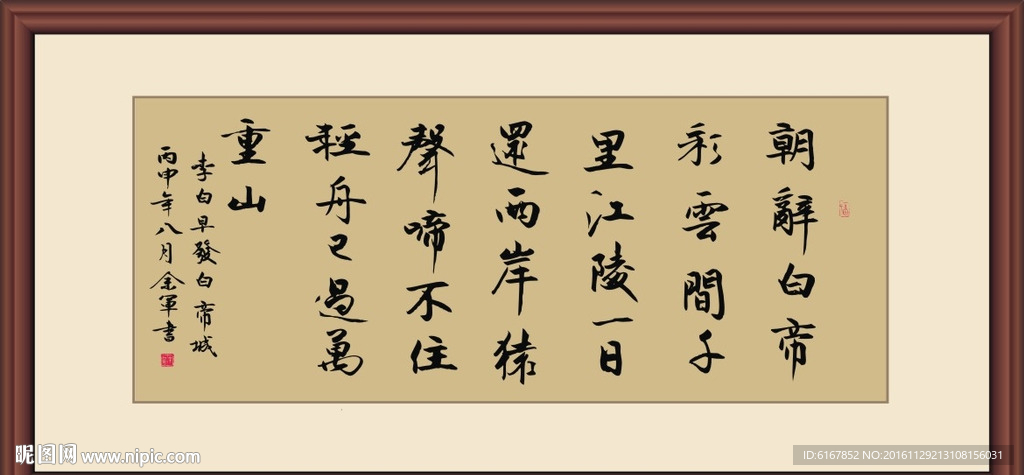 朝辭白帝
彩雲間千
里江陵一日
還两岸猿
聲啼不住
輕舟已過萬
重山
李白早發白帝城
丙申年八月金軍書
昵图网 www.nipic.com
ID:6167852 NO:20161129213108156031